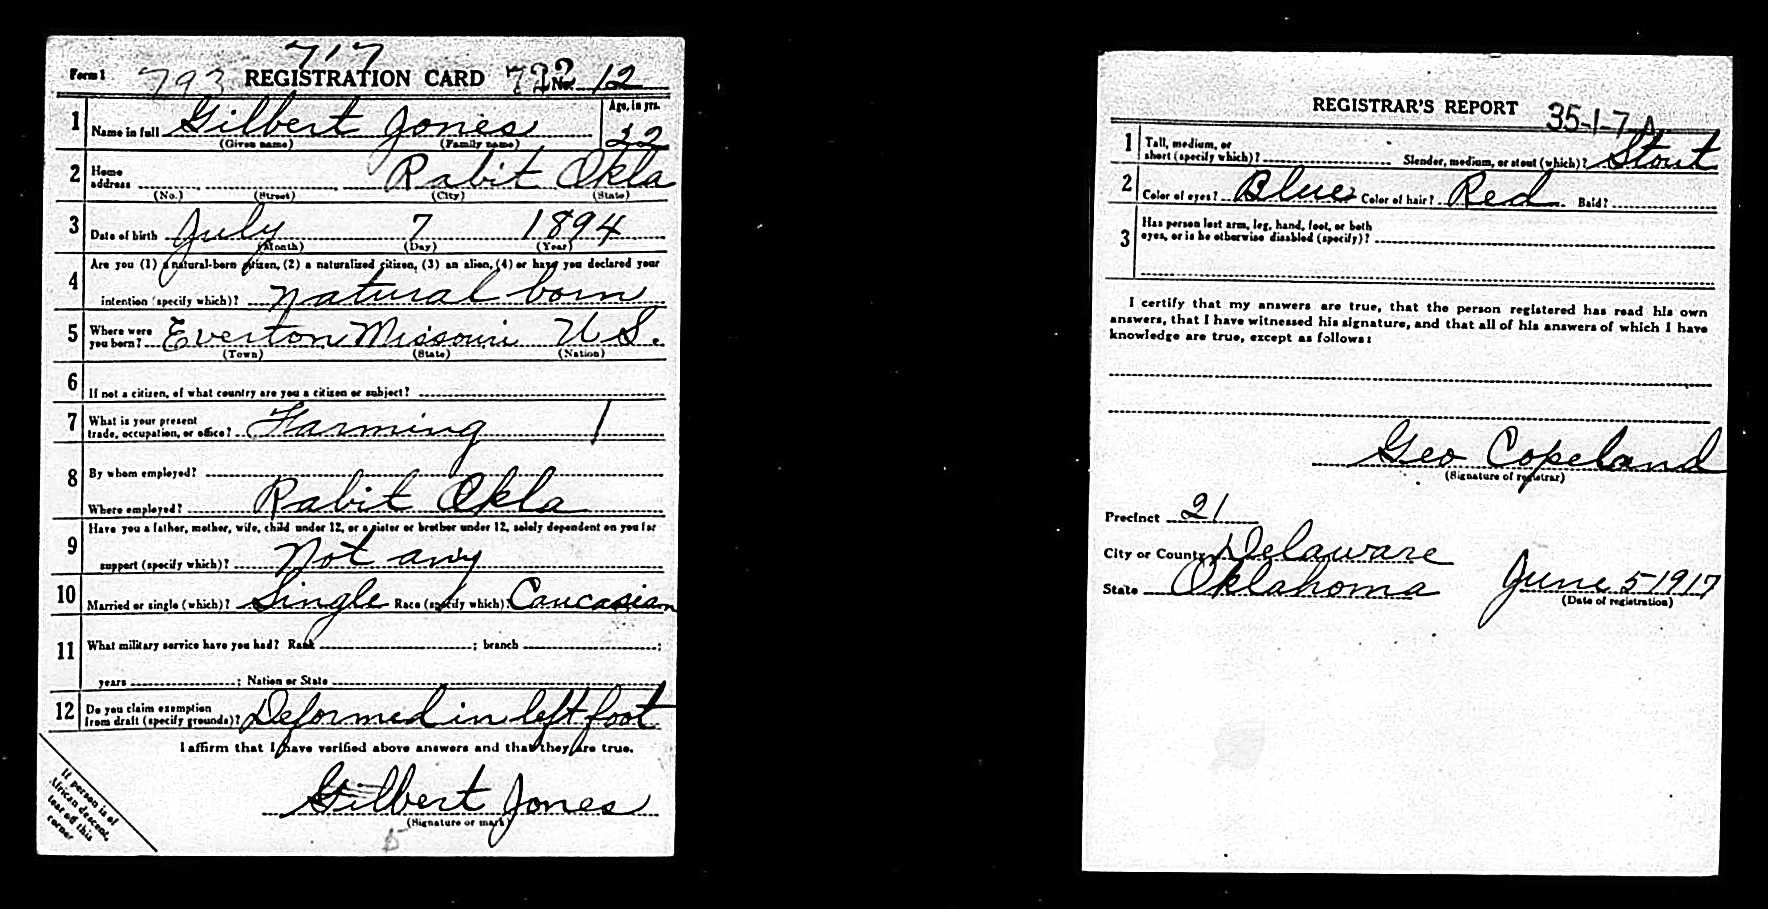 717
Form 1 793 REGISTRATION CARD 722 No. 12
1 Name in full Gilbert Jones Age, in yrs. 22
(Given name) (Family name)
2 Home address Rabit Okla
(No.) (Street) (City) (State)
3 Date of birth July 7 1894
(Month) (Day) (Year)
4 Are you (1) a natural-born citizen, (2) a naturalized citizen, (3) an alien, (4) or have you declared your
intention (specify which)? Natural born
5 Where were you born? Everton Missouri U S.
(Town) (State) (Nation)
6 If not a citizen, of what country are you a citizen or subject?
7 What is your present trade, occupation, or office? Farming 1
8 By whom employed?
Where employed? Rabit Okla
9 Have you a father, mother, wife, child under 12, or a sister or brother under 12, solely dependent on you for
support (specify which)? Not any
10 Married or single (which)? Single Race (specify which)? Caucasian
11 What military service have you had? Rank ; branch ;
years ; Nation or State
12 Do you claim exemption from draft (specify grounds)? Deformed in left foot
I affirm that I have verified above answers and that they are true.
Gilbert Jones
(Signature or mark)
If person is of
African descent,
tear off this
corner
REGISTRAR'S REPORT 35-1-7 A
1 Tall, medium, or short (specify which)? Slender, medium, or stout (which)? Stout
2 Color of eyes? Blue Color of hair? Red Bald?
3 Has person lost arm, leg, hand, foot, or both
eyes, or is he otherwise disabled (specify)?
I certify that my answers are true, that the person registered has read his own
answers, that I have witnessed his signature, and that all of his answers of which I have
knowledge are true, except as follows:
Geo Copeland
(Signature of registrar)
Precinct 21
City or County Delaware
State Oklahoma June 5 1917
(Date of registration)